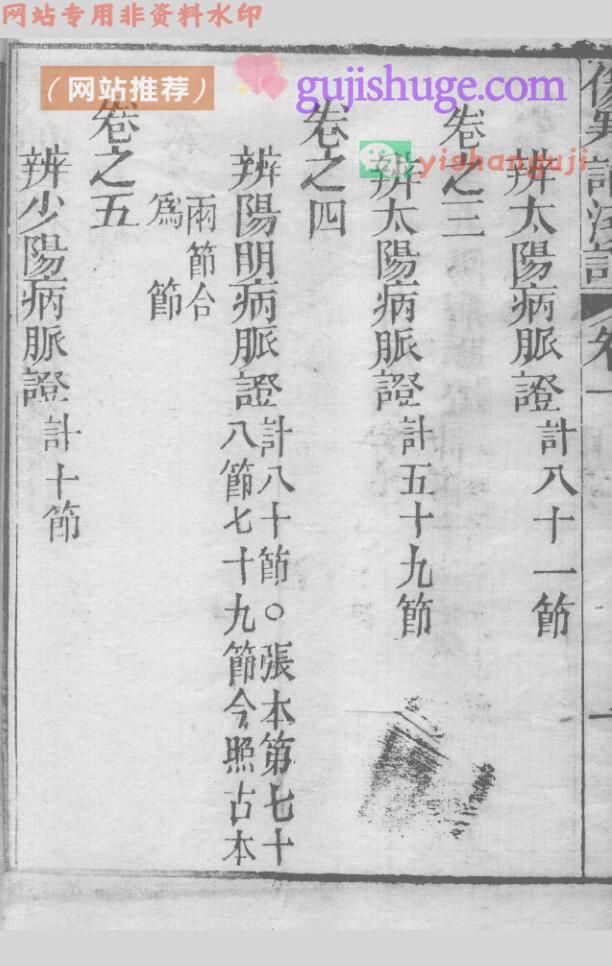 网站专用非资料水印
(网站推荐)
gujishuge.com
yishanguji
辨太陽病脈證計八十一節
卷之三
辨太陽病脈證計五十九節
卷之四
辨陽明病脈證計八十節○張本第七十
八節七十九節今照古本
兩節合
爲 節
卷之五
辨少陽病脈證計十節